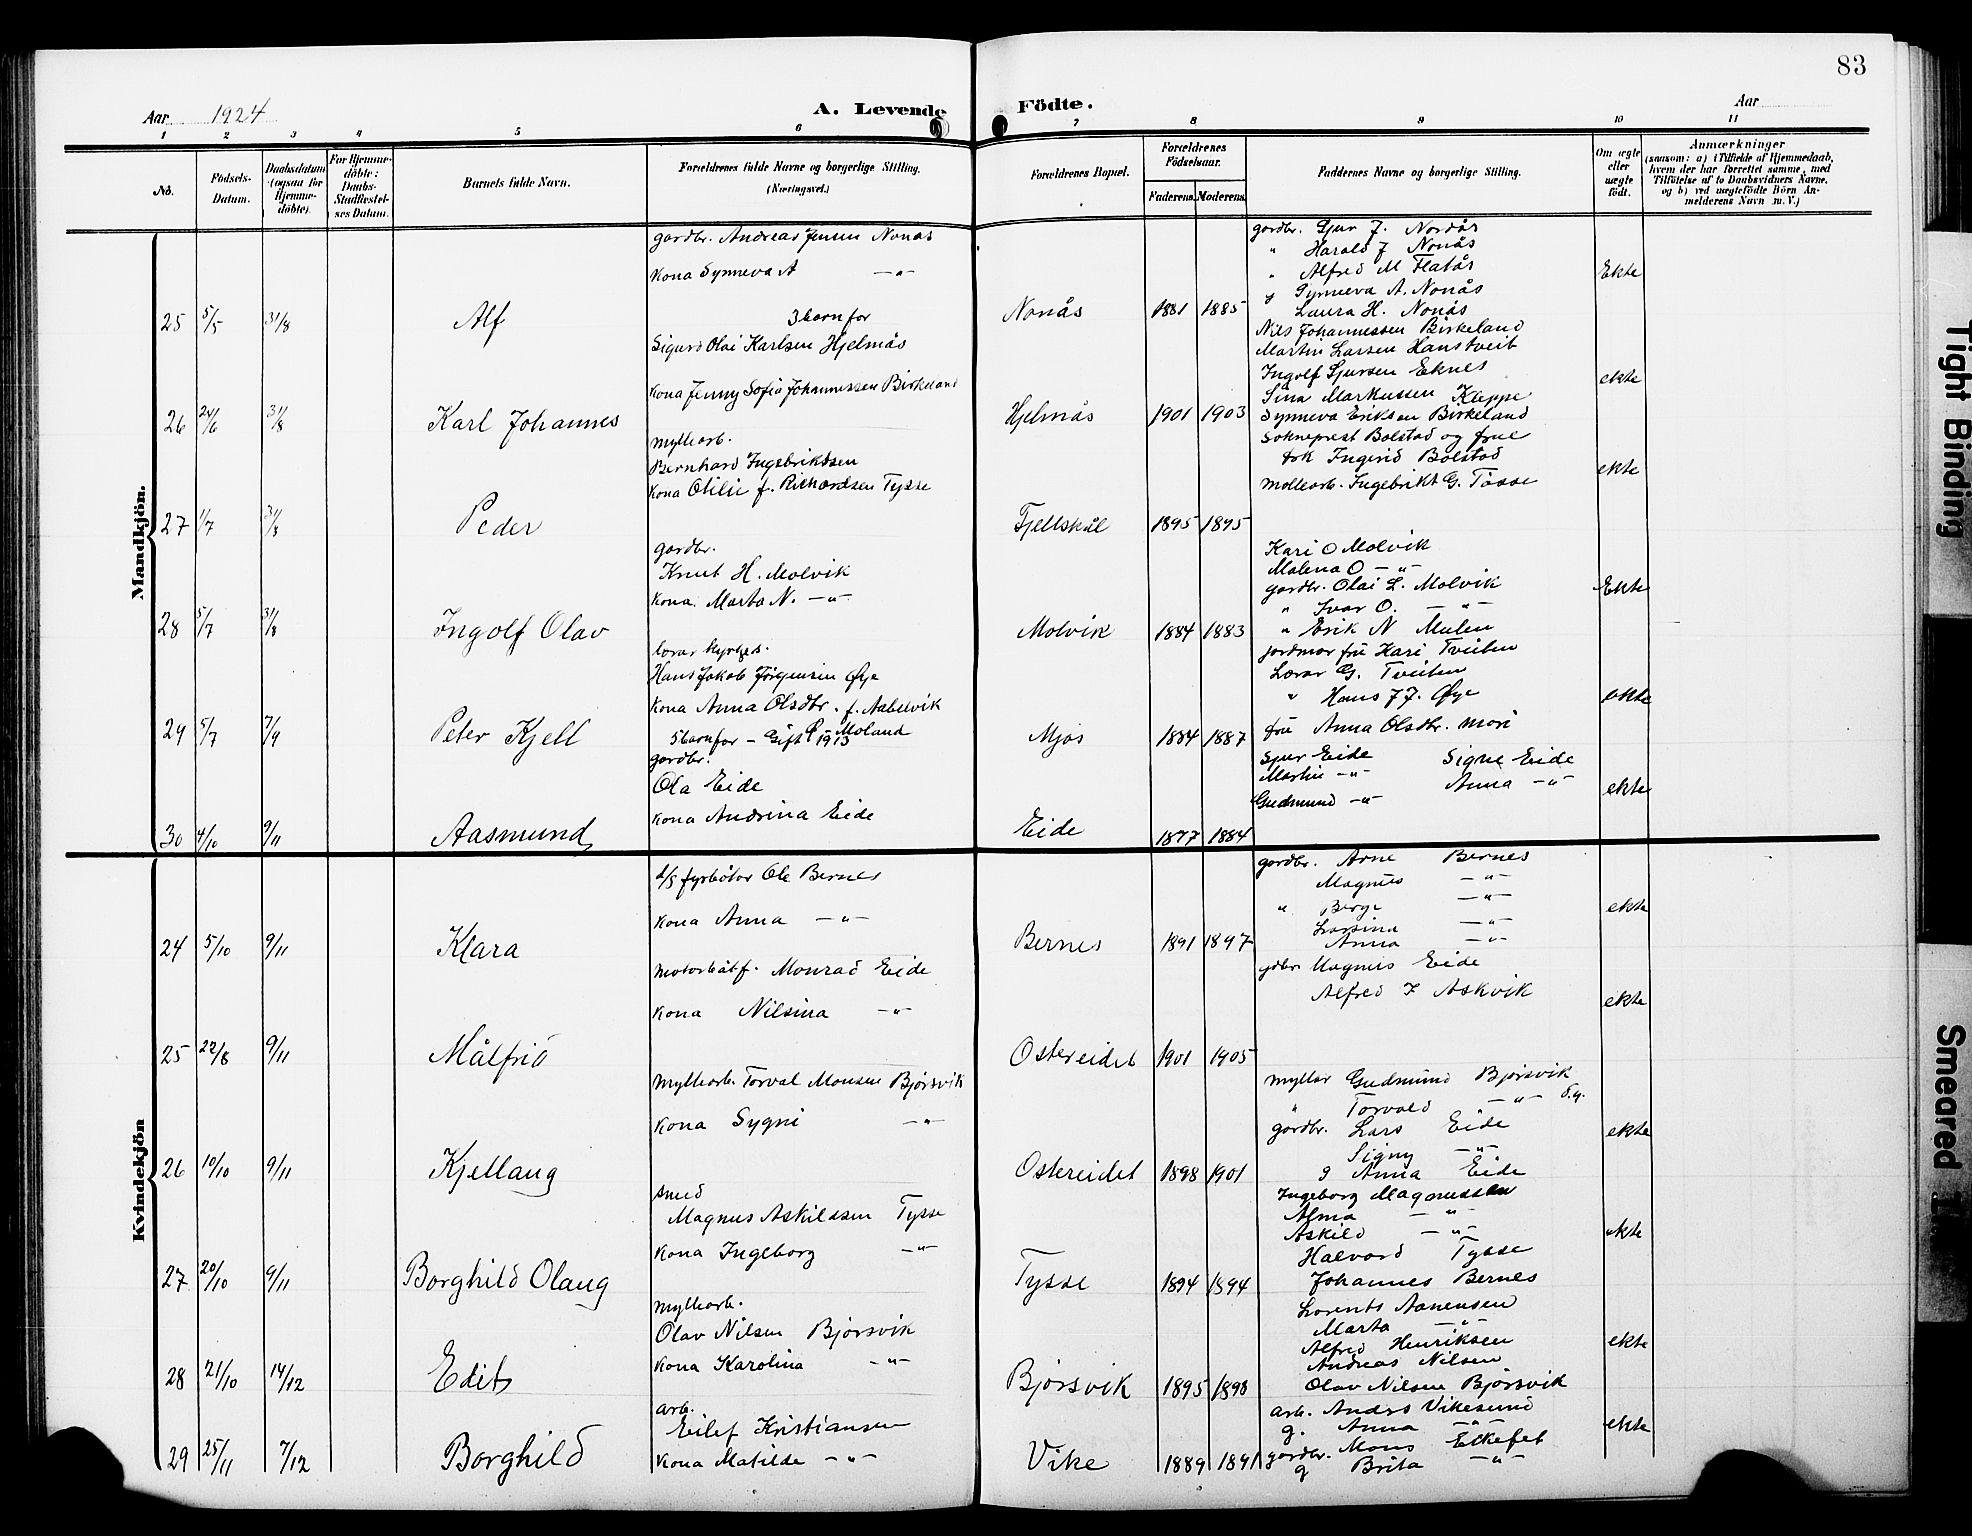 83
Aar 1924
A. Levende Födte.
Aar
1 2 3 4 5 6 7 8 9 10 11
No.
Födsels-Datum.
Daabsdatum (ogsaa for Hjemme-döbte).
For Hjemme-döbte: Daabs-Stadfæstel-ses Datum.
Barnets fulde Navn.
Forældrenes fulde Navne og borgerlige Stilling. (Næringsvei.)
Forældrenes Bopæl.
Forældrenes Födselsaar.
Faderens. Moderens.
Faddernes Navne og borgerlige Stilling.
Om ægte eller uægte födt.
Anmærkninger
(saasom: a) i Tilfælde af Hjemmedaab, hvem der har forrettet samme, med Tilföielse af to Daabsvidners Navne, og b) ved uægtefödte Börn An-melderens Navn m. V.)
Mandkjön.
gardbr. Andreas Jensen Nonås
Kona Synneva A —"—
3 barn for
25 5/5 31/8 Alf Nonås 1881 1885 Ekte
gardbr. Sjur J. Nordås
" Harald J Nonås
" Alfred M Flatås
g Synneva A. Nonås
Laura H. Nonås
Sigurd Olai Karlsen Hjelmås
Kona Jenny Sofia Johannessen Birkeland
26 24/6 31/8 Karl Johannes Hjelmås 1901 1903 ekte
Nils Johannessen Birkeland
Martin Larsen Hanstveit
Ingolf Sjursen Eknes
Sina Markussen Kleppe
Synneva Eriksen Birkeland
myllearb.
Bernhard Ingebriktsen
Kona Otilie f. Richardsen Tysse
27 1/7 31/8 Peder Fjellskål 1895 1895 ekte
Sokneprest Bolstad og frue
frk Ingerid Bolstad
møllearb. Ingebrikt G. Tösse
gardbr.
Knut H. Molvik
Kona. Marta N. —"—
28 5/7 31/8 Ingolf Olav Molvik 1884 1883 Ekte
Kari O Molvik
Malena O —"—
gardbr. Olai L. Molvik
" Ivar O. —"—
" Erik N Mulen
lærar kyrkjes.
Hans Jakob Jörgensen Øye
Kona Anna Olsdtr. f. Aabelvik
5 barn for — Gift 1913 Moland
29 5/7 7/9 Peter Kjell Mjøs 1884 1887 ekte
jordmor fru Kari Tveiten
Lærar G. Tveiten
" Hans J J. Øye
fru Anna Olsdtr. mori
gardbr.
Ola Eide
Kona Andrina Eide
30 4/10 9/11 Aasmund Eide 1877 1884 ekte
Sjur Eide Signe Eide
Martin —"— Anna —"—
Gudmund —"—
Kvindekjön
d/s fyrbøtar Ole Bernes
Kona Anna —"—
24 5/10 9/11 Klara Bernes 1891 1897 ekte
gardbr. Arne Bernes
Magnus —"—
" Berge —"—
Larsina —"—
Anna —"—
motorbåtf. Monrad Eide
Kona Nilsina —"—
25 22/8 9/11 Målfrid Ostereidet 1901 1905 ekte
gdbr Magnus Eide
Alfred J Askvik
myllearb. Torval Monsen Bjørsvik
Kona Sygni —"—
26 10/10 9/11 Kjellaug Ostereidet 1898 1901 ekte
myllar Gudmund Bjørsvik
" Torvald —"— d.y.
gardbr. Lars Eide
Signy —"—
g Anna Eide
smed
Magnus Askildsen Tysse
Kona Ingeborg —"—
27 20/10 9/11 Borghild Olaug Tysse 1894 1894 ekte
Ingeborg Magnussen
Alma —"—
Askild —"—
Halvard Tysse
Johannes Bernes
myllearb.
Olav Nilsen Bjørsvik
Kona Karolina —"—
28 21/10 14/12 Edit Bjørsvik 1895 1898 ekte
Lorents Aanensen
Marta —"—
Alfred Henriksen
Andreas Nilsen
Olav Nilsen Bjørsvik
arb.
Eilef Kristiansen
Kona Matilde —"—
29 25/11 7/12 Borghild Vike 1889 1891 ekte
arb. Anders Vikesund
g. Anna —"—
gardbr. Mons Eikefet
g Brita —"—
Tight Binding
Smeared